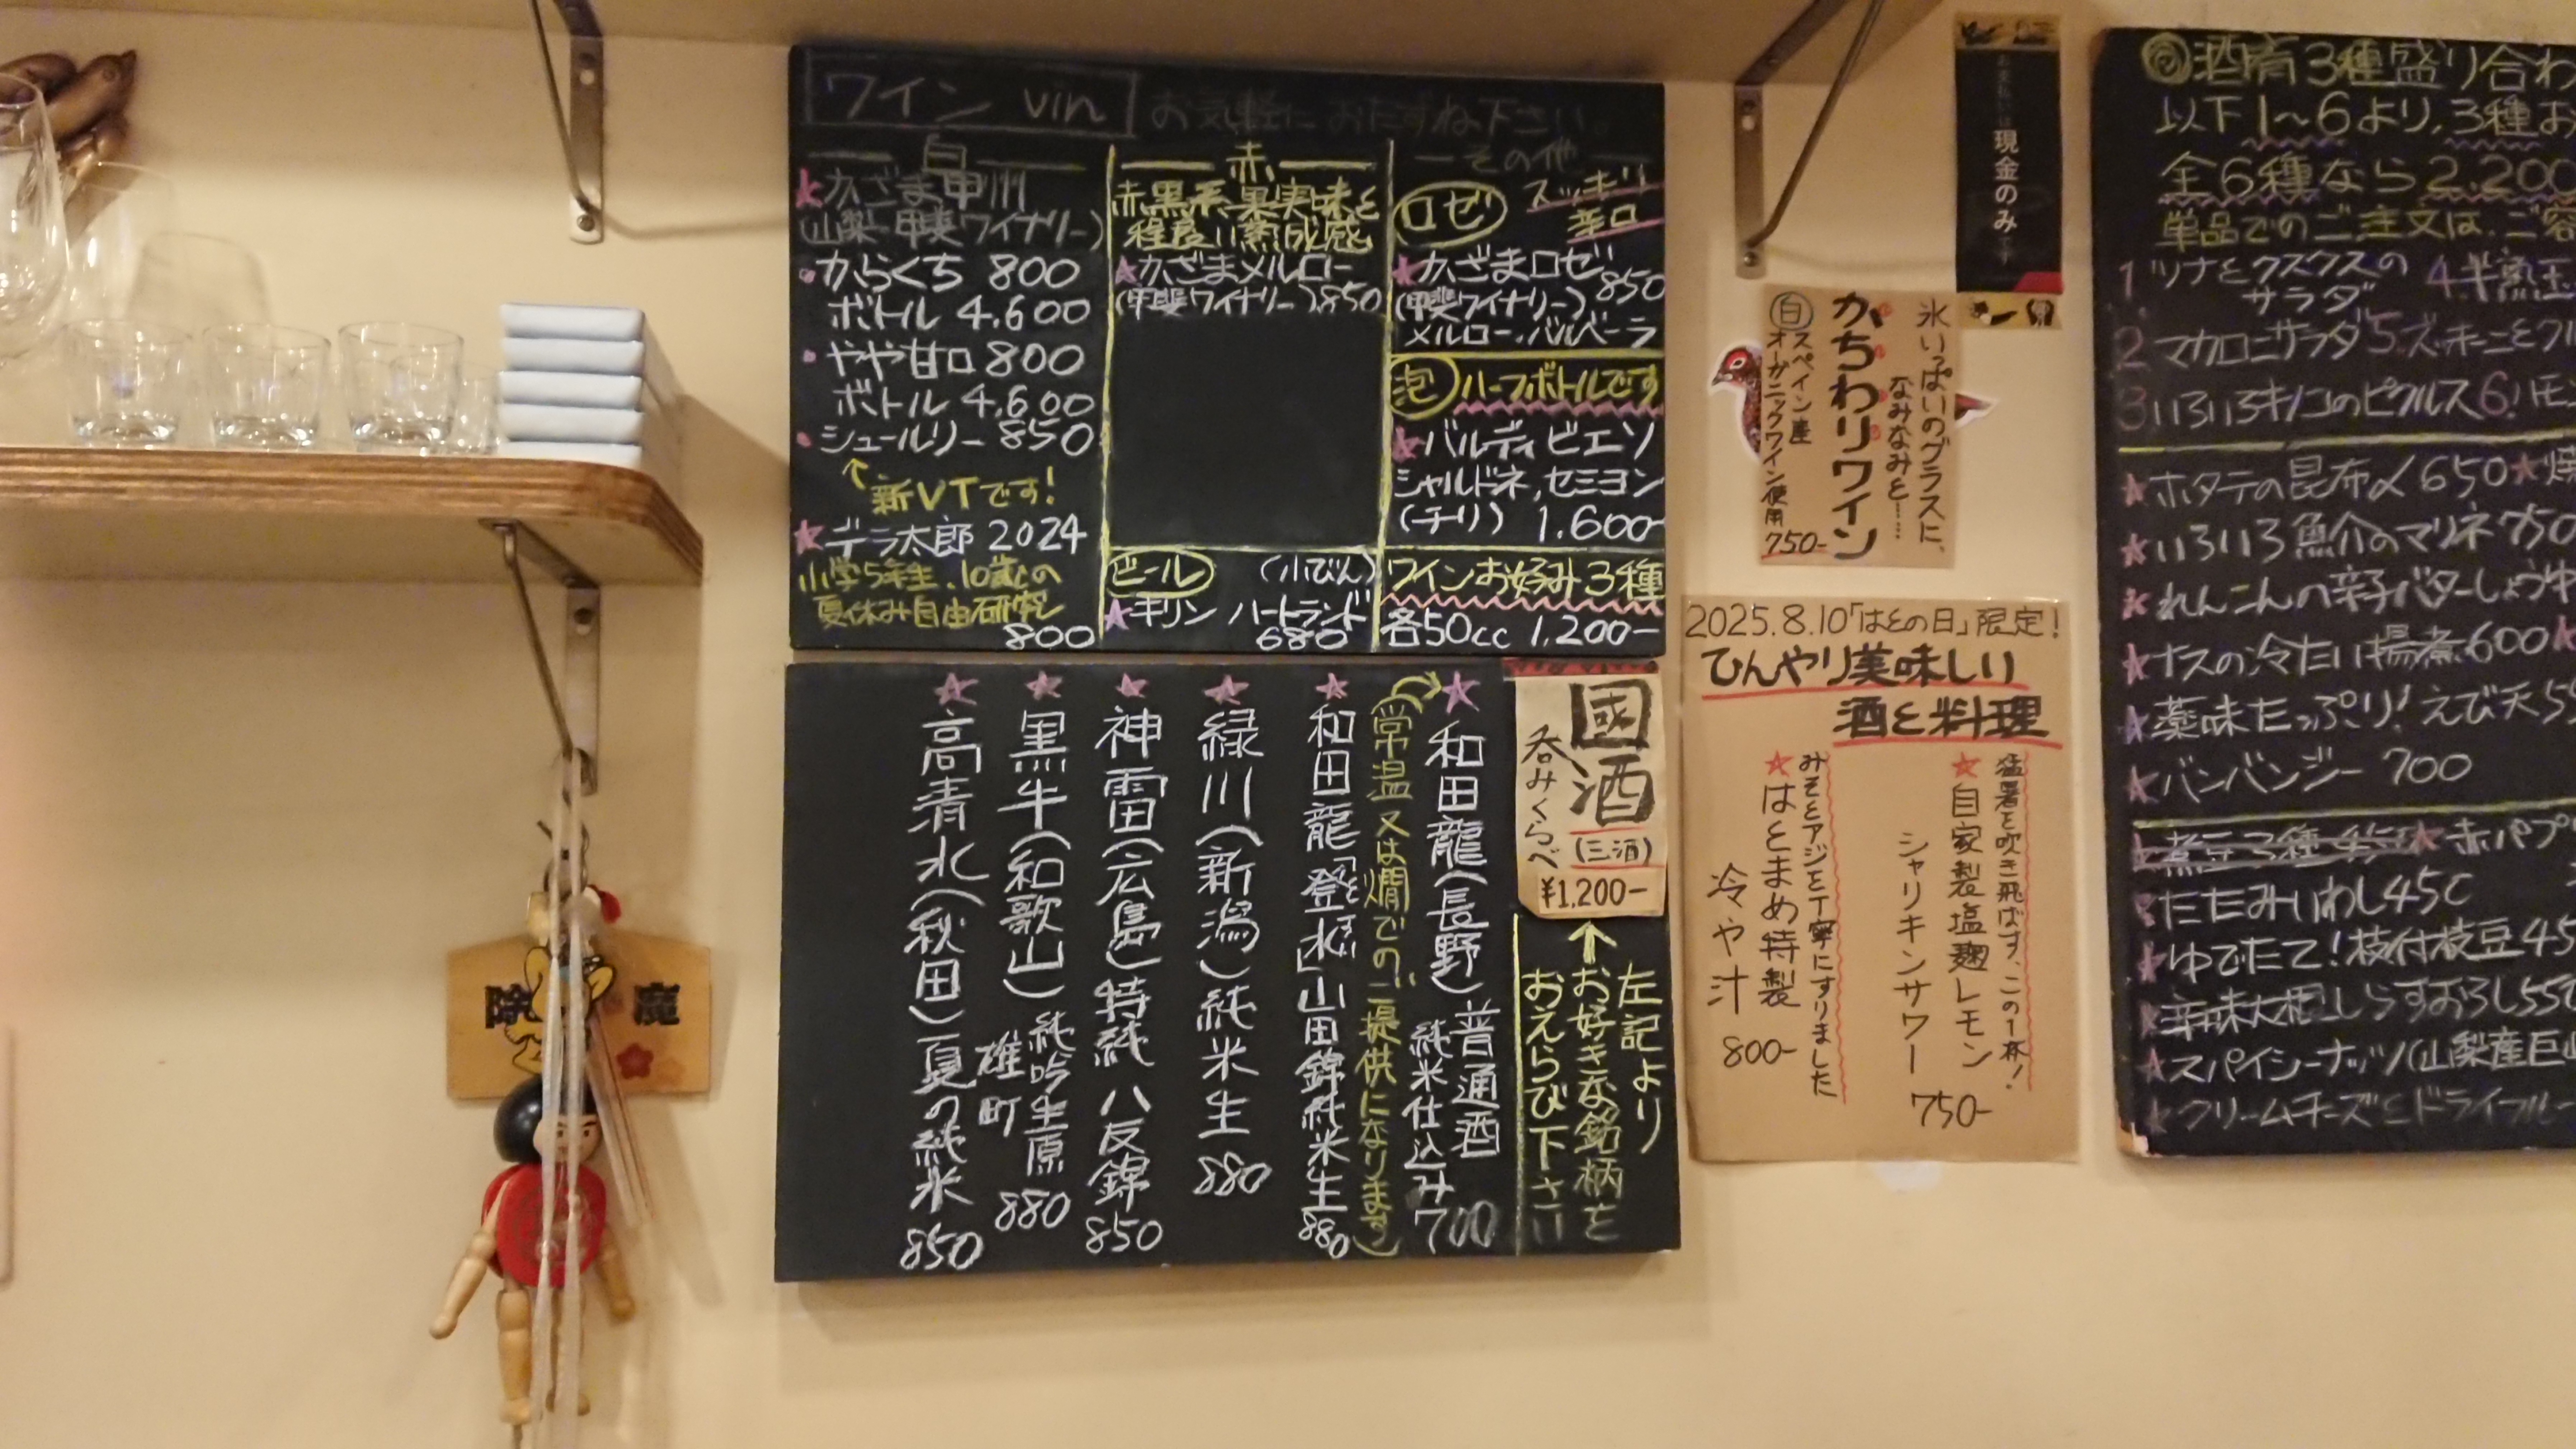 ワイン vin
お気軽におたずね下さい。
白
★かざま甲州
(山梨・甲斐ワイナリー)
・からくち 800
ボトル 4,600
・やや甘口 800
ボトル 4,600
・シュールリー 850
↑新VTです!
★デラ太郎 2024
小学5年生、10歳の
夏休み自由研究
800
赤
赤黒系果実味と
程良い熟成感
★かざまメルロー
(甲斐ワイナリー) 850
ビール (小びん)
★キリン ハートランド
680
その他
ロゼ スッキリ
辛口
★かざまロゼ 850
(甲斐ワイナリー)
メルロー、バルベーラ
泡 ハーフボトルです
★バルディビエソ
シャルドネ,セミヨン
(チリ) 1.600-
ワインお好み3種
各50cc 1,200-
國酒
呑みくらべ
(三酒)
¥1,200-
↑
左記より
お好きな銘柄を
おえらび下さい
★和田龍(長野)普通酒
純米仕込み 700
常温又は燗でのご提供になります)
★和田龍「登水」山田錦純米生 880
★緑川(新潟)純米生 880
★神雷(広島)特純 八反錦 850
★黒牛(和歌山)純吟生原
雄町 880
★高清水(秋田)夏の純米 850
お支払いは現金のみです
氷いっぱいのグラスに、
なみなみと……
かちわりワイン
白 スペイン産
オーガニックワイン使用
750-
2025.8.10「はとの日」限定!
ひんやり美味しい
酒と料理
猛暑を吹き飛ばす、この1杯!
★自家製塩麹レモン
シャリキンサワー
750-
みそとアジと丁寧にすりました
★はとまめ特製
冷や汁
800-
酒肴3種盛り合わ
以下1〜6より,3種お
全6種なら2,200
単品でのご注文は、ご容
1 ツナとクスクスの
サラダ
4 半熟玉
2 マカロニサラダ 5 ズッキーニと
3 いろいろキノコのピクルス 6
★ホタテの昆布〆 650
★いろいろ魚介のマリネ 750
★れんこんの辛子バターしょうゆ
★ナスの冷たい揚煮 600
★薬味たっぷり! えび天
★バンバンジー 700
★煮豆3種
★赤パプ
★たたみいわし 450
★ゆでたて!枝付枝豆 45
★辛味大根しらすおろし 55
★スパイシーナッツ(山梨産巨
★クリームチーズとドライフルー
除 魔